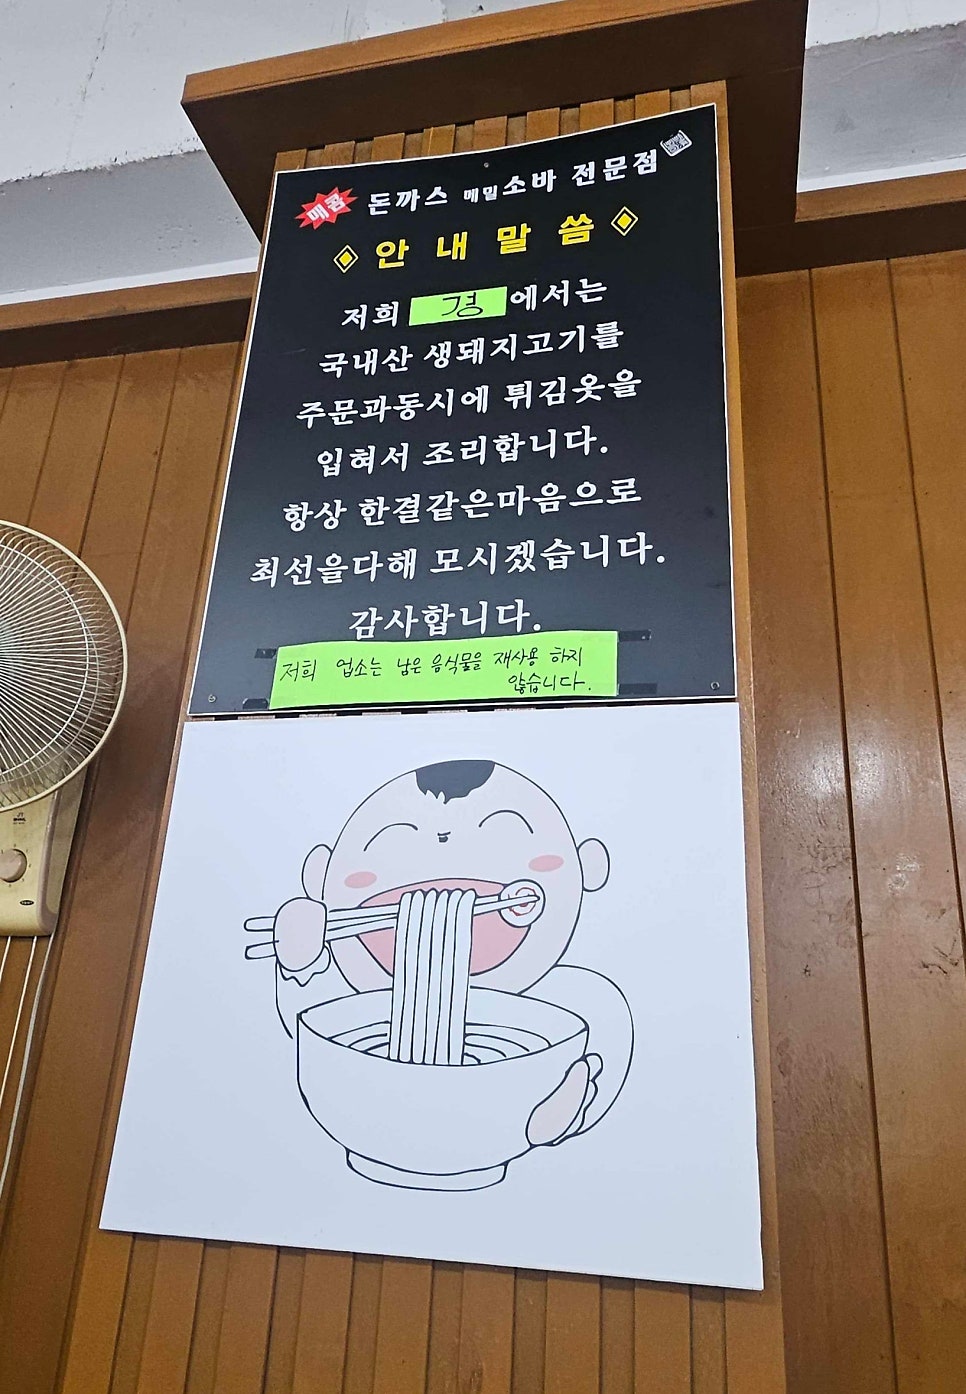 매콤 돈까스 메밀소바 전문점
안내말씀
저희 경 에서는
국내산 생돼지고기를
주문과동시에 튀김옷을
입혀서 조리합니다.
항상 한결같은마음으로
최선을다해 모시겠습니다.
감사합니다.
저희 업소는 남은 음식물을 재사용 하지
않습니다.